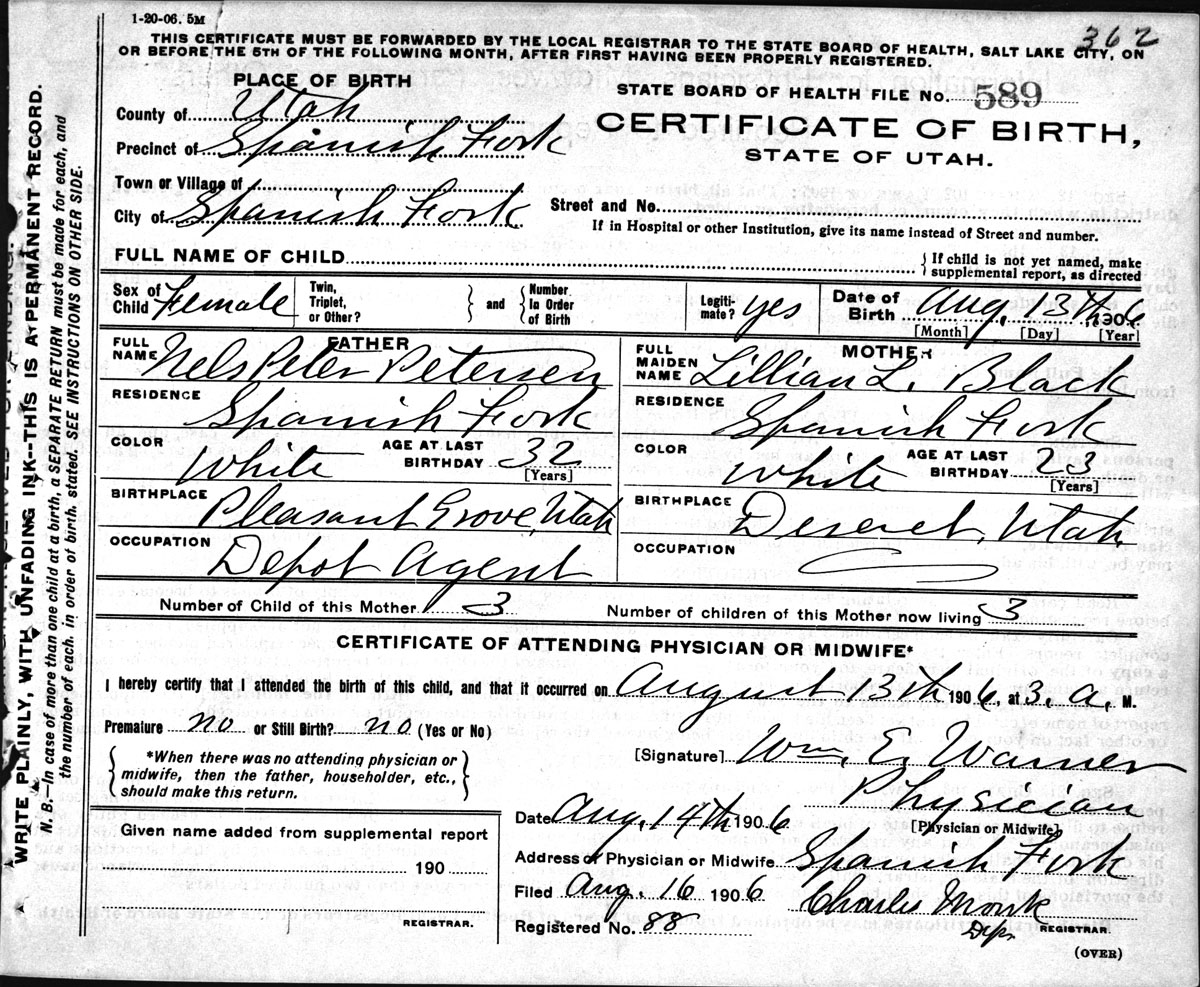 1-20-06. 5M
362
THIS CERTIFICATE MUST BE FORWARDED BY THE LOCAL REGISTRAR TO THE STATE BOARD OF HEALTH, SALT LAKE CITY, ON
OR BEFORE THE 5TH OF THE FOLLOWING MONTH, AFTER FIRST HAVING BEEN PROPERLY REGISTERED.
PLACE OF BIRTH
County of Utah
Precinct of Spanish Fork
Town or Village of
City of Spanish Fork
STATE BOARD OF HEALTH FILE No. 589
CERTIFICATE OF BIRTH,
STATE OF UTAH.
Street and No.
If in Hospital or other Institution, give its name instead of Street and number.
FULL NAME OF CHILD
If child is not yet named, make
supplemental report, as directed
Sex of Child Female
Twin, Triplet, or Other?
and
Number In Order of Birth
Legiti-mate? yes
Date of Birth Aug. 13th, 1906
[Month] [Day] [Year]
FATHER
FULL NAME Nels Peter Petersen
RESIDENCE Spanish Fork
COLOR White AGE AT LAST BIRTHDAY 32
[Years]
BIRTHPLACE Pleasant Grove, Utah
OCCUPATION Depot Agent
MOTHER
FULL MAIDEN NAME Lillian L. Black
RESIDENCE Spanish Fork
COLOR White AGE AT LAST BIRTHDAY 23
[Years]
BIRTHPLACE Deseret, Utah
OCCUPATION
Number of Child of this Mother 3 Number of children of this Mother now living 3
CERTIFICATE OF ATTENDING PHYSICIAN OR MIDWIFE*
I hereby certify that I attended the birth of this child, and that it occurred on August 13th 1906, at 3. a. M.
Premature no or Still Birth? no (Yes or No)
*When there was no attending physician or
midwife, then the father, householder, etc.,
should make this return.
[Signature] Wm. E. Warner
Physician
[Physician or Midwife]
Date Aug. 14th 1906
Address of Physician or Midwife Spanish Fork
Filed Aug. 16 1906
Charles Monk
Dep. REGISTRAR.
Registered No. 88
(OVER)
Given name added from supplemental report
190
REGISTRAR.
WRITE PLAINLY, WITH UNFADING INK--THIS IS A PERMANENT RECORD.
N. B.—In case of more than one child at a birth, a SEPARATE RETURN must be made for each, and
the number of each, in order of birth, stated. SEE INSTRUCTIONS ON OTHER SIDE.